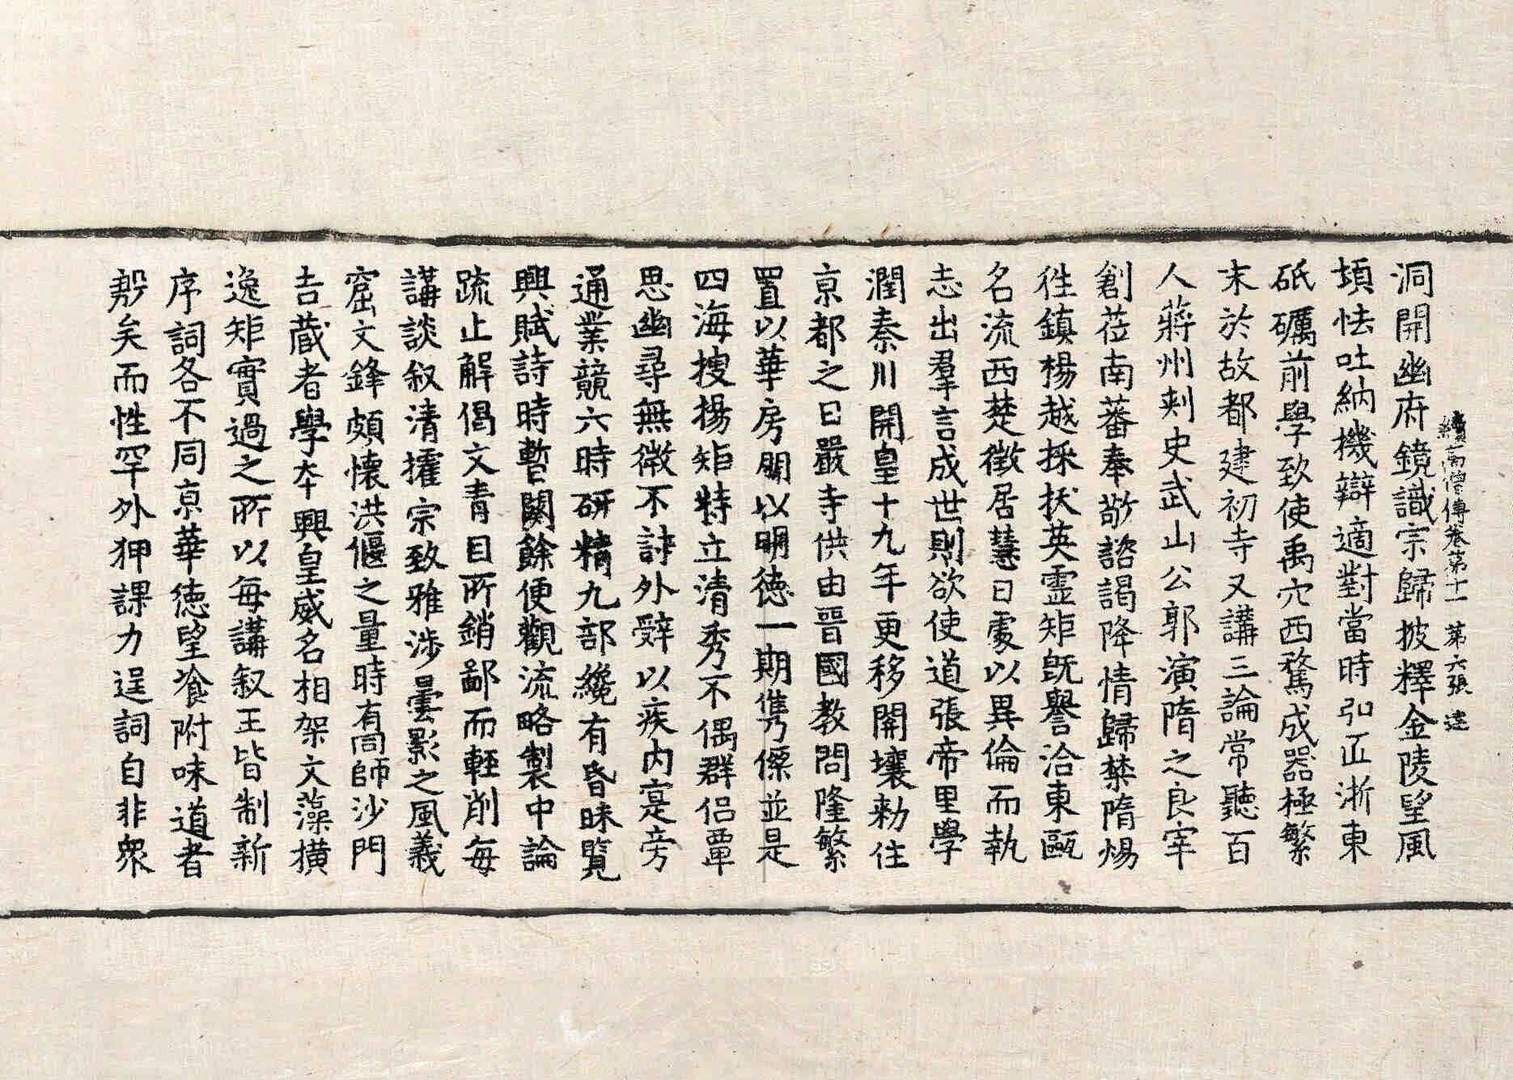 續高僧傳卷第十一 第六張 達
洞開幽府鏡識宗歸披釋金陵望風
頊怯吐納機辯適對當時弘正浙東
砥礪前學致使禹穴西騖成器極繁
末於故都建初寺又講三論常聽百
人蔣州刺史武山公郭演隋之良宰
創莅南蕃奉敬諮謁降情歸禁隋煬
徃鎮楊越採扙英靈矩既譽洽東甌
名流西楚徵居慧日處以異倫而執
志出羣言成世則欲使道張帝里學
潤秦川開皇十九年更移關壤勑住
京都之日嚴寺供由晉國教問隆繁
置以華房關以明徳一期雋傑並是
四海搜揚矩特立清秀不偶群侣覃
思幽尋無微不討外辤以疾内寔旁
通業競六時研精九部纔有昏昧覽
興賦詩時暫闋餘便觀流略製中論
疏止解偈文青目所銷鄙而輕削每
講談叙清攉宗致雅涉曇影之風義
窟文鋒頗懷洪偃之量時有同師沙門
吉蔵者學夲興皇威名相架文藻横
逸矩實過之所以每講叙王皆制新
序詞各不同京華徳望飡附味道者
殷矣而性罕外狎課力逞詞自非衆